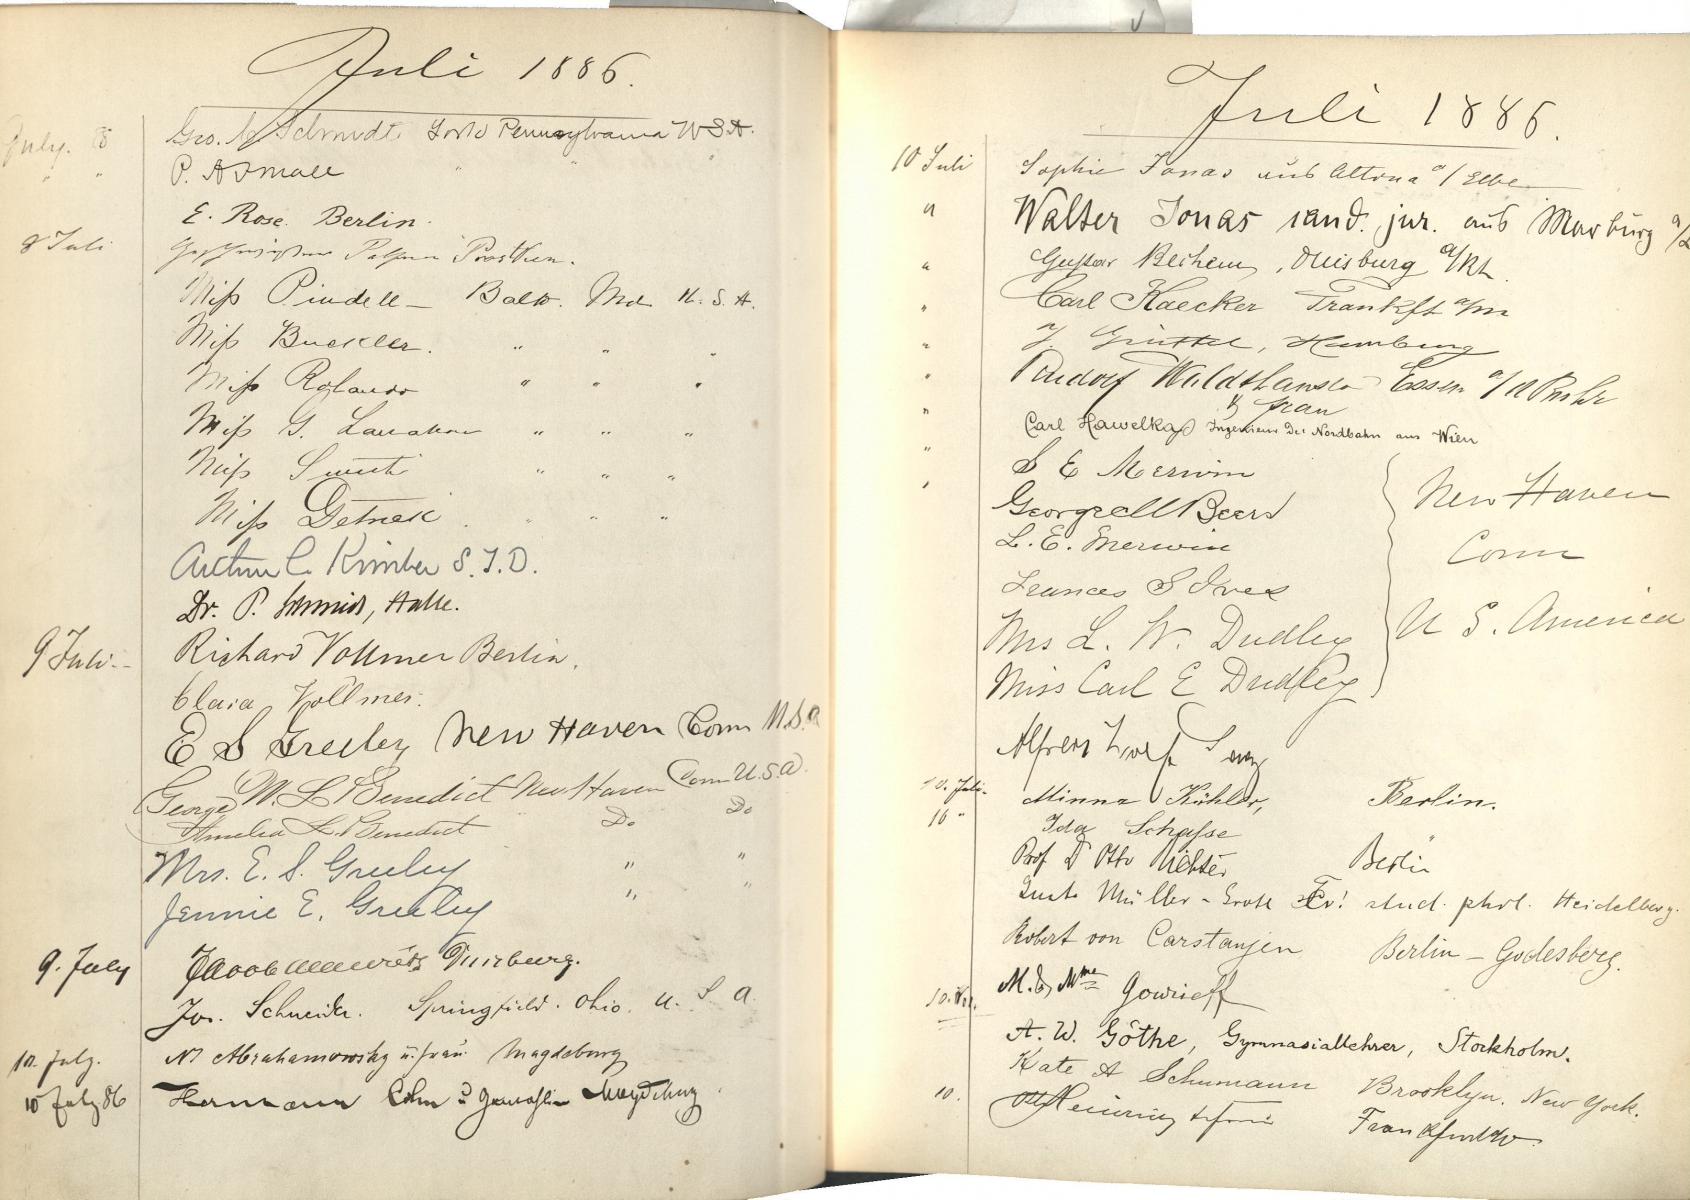 Juli 1886.
July. 8 Geo. Schmidt York Pennsylvania U S A.
" " P. A. Small " " "
E. Rose Berlin.
8 Juli
Miss Pindell – Balto. Md U. S. A.
Miss Buckler. " " "
Miss Rolando " " "
Miss G. " " "
Miss Smith " " "
Miss " " "
Arthur C. Kimber S. T. D.
Dr. P. Schmidt, Halle.
9 Juli Richard Vollmer Berlin.
Clara Vollmer.
E S Greeley New Haven Conn U.S.A
George W. L. Benedict New Haven Conn U.S.A.
Amelia L. Benedict Do Do
Mrs. E. S. Greeley " "
Jennie E. Greeley " "
9. July Jacob Duisburg.
Jos. Schneider. Springfield. Ohio. U. S. A.
10. July. M Abrahamowsky u. Frau Magdeburg
10 July 86 Hermann Cohn u Gemahlin Magdeburg.
Juli 1886.
10 Juli Sophie Jonas aus Altona a/Elbe
" Walter Jonas cand. jur. aus Marburg a/L
" Gustav Bechem, Duisburg a/Rh
" Carl Haecker Frankft a/m
" Hamburg
" Rudolf Waldthausen Essen a/d Ruhr
& frau
" Carl Hawelka Ingenieur der Nordbahn aus Wien
" S E Merwin
" George W Beers New Haven
L. E. Merwin
Frances S Ives Conn
Mrs L. W. Dudley U S. America
Miss Carl E Dudley
Alfred
10. Juli. Minna Köhler, Berlin.
10 " Ida Schasse "
Prof. D Otto Richter Berlin
Müller-Grote stud. phil. Heidelberg.
Robert von Carstanjen Berlin – Godesberg.
M. & Mme Gowrieff
A. W. Göthe, Gymnasiallehrer, Stockholm.
Kate A Schumann Brooklyn. New York.
10.